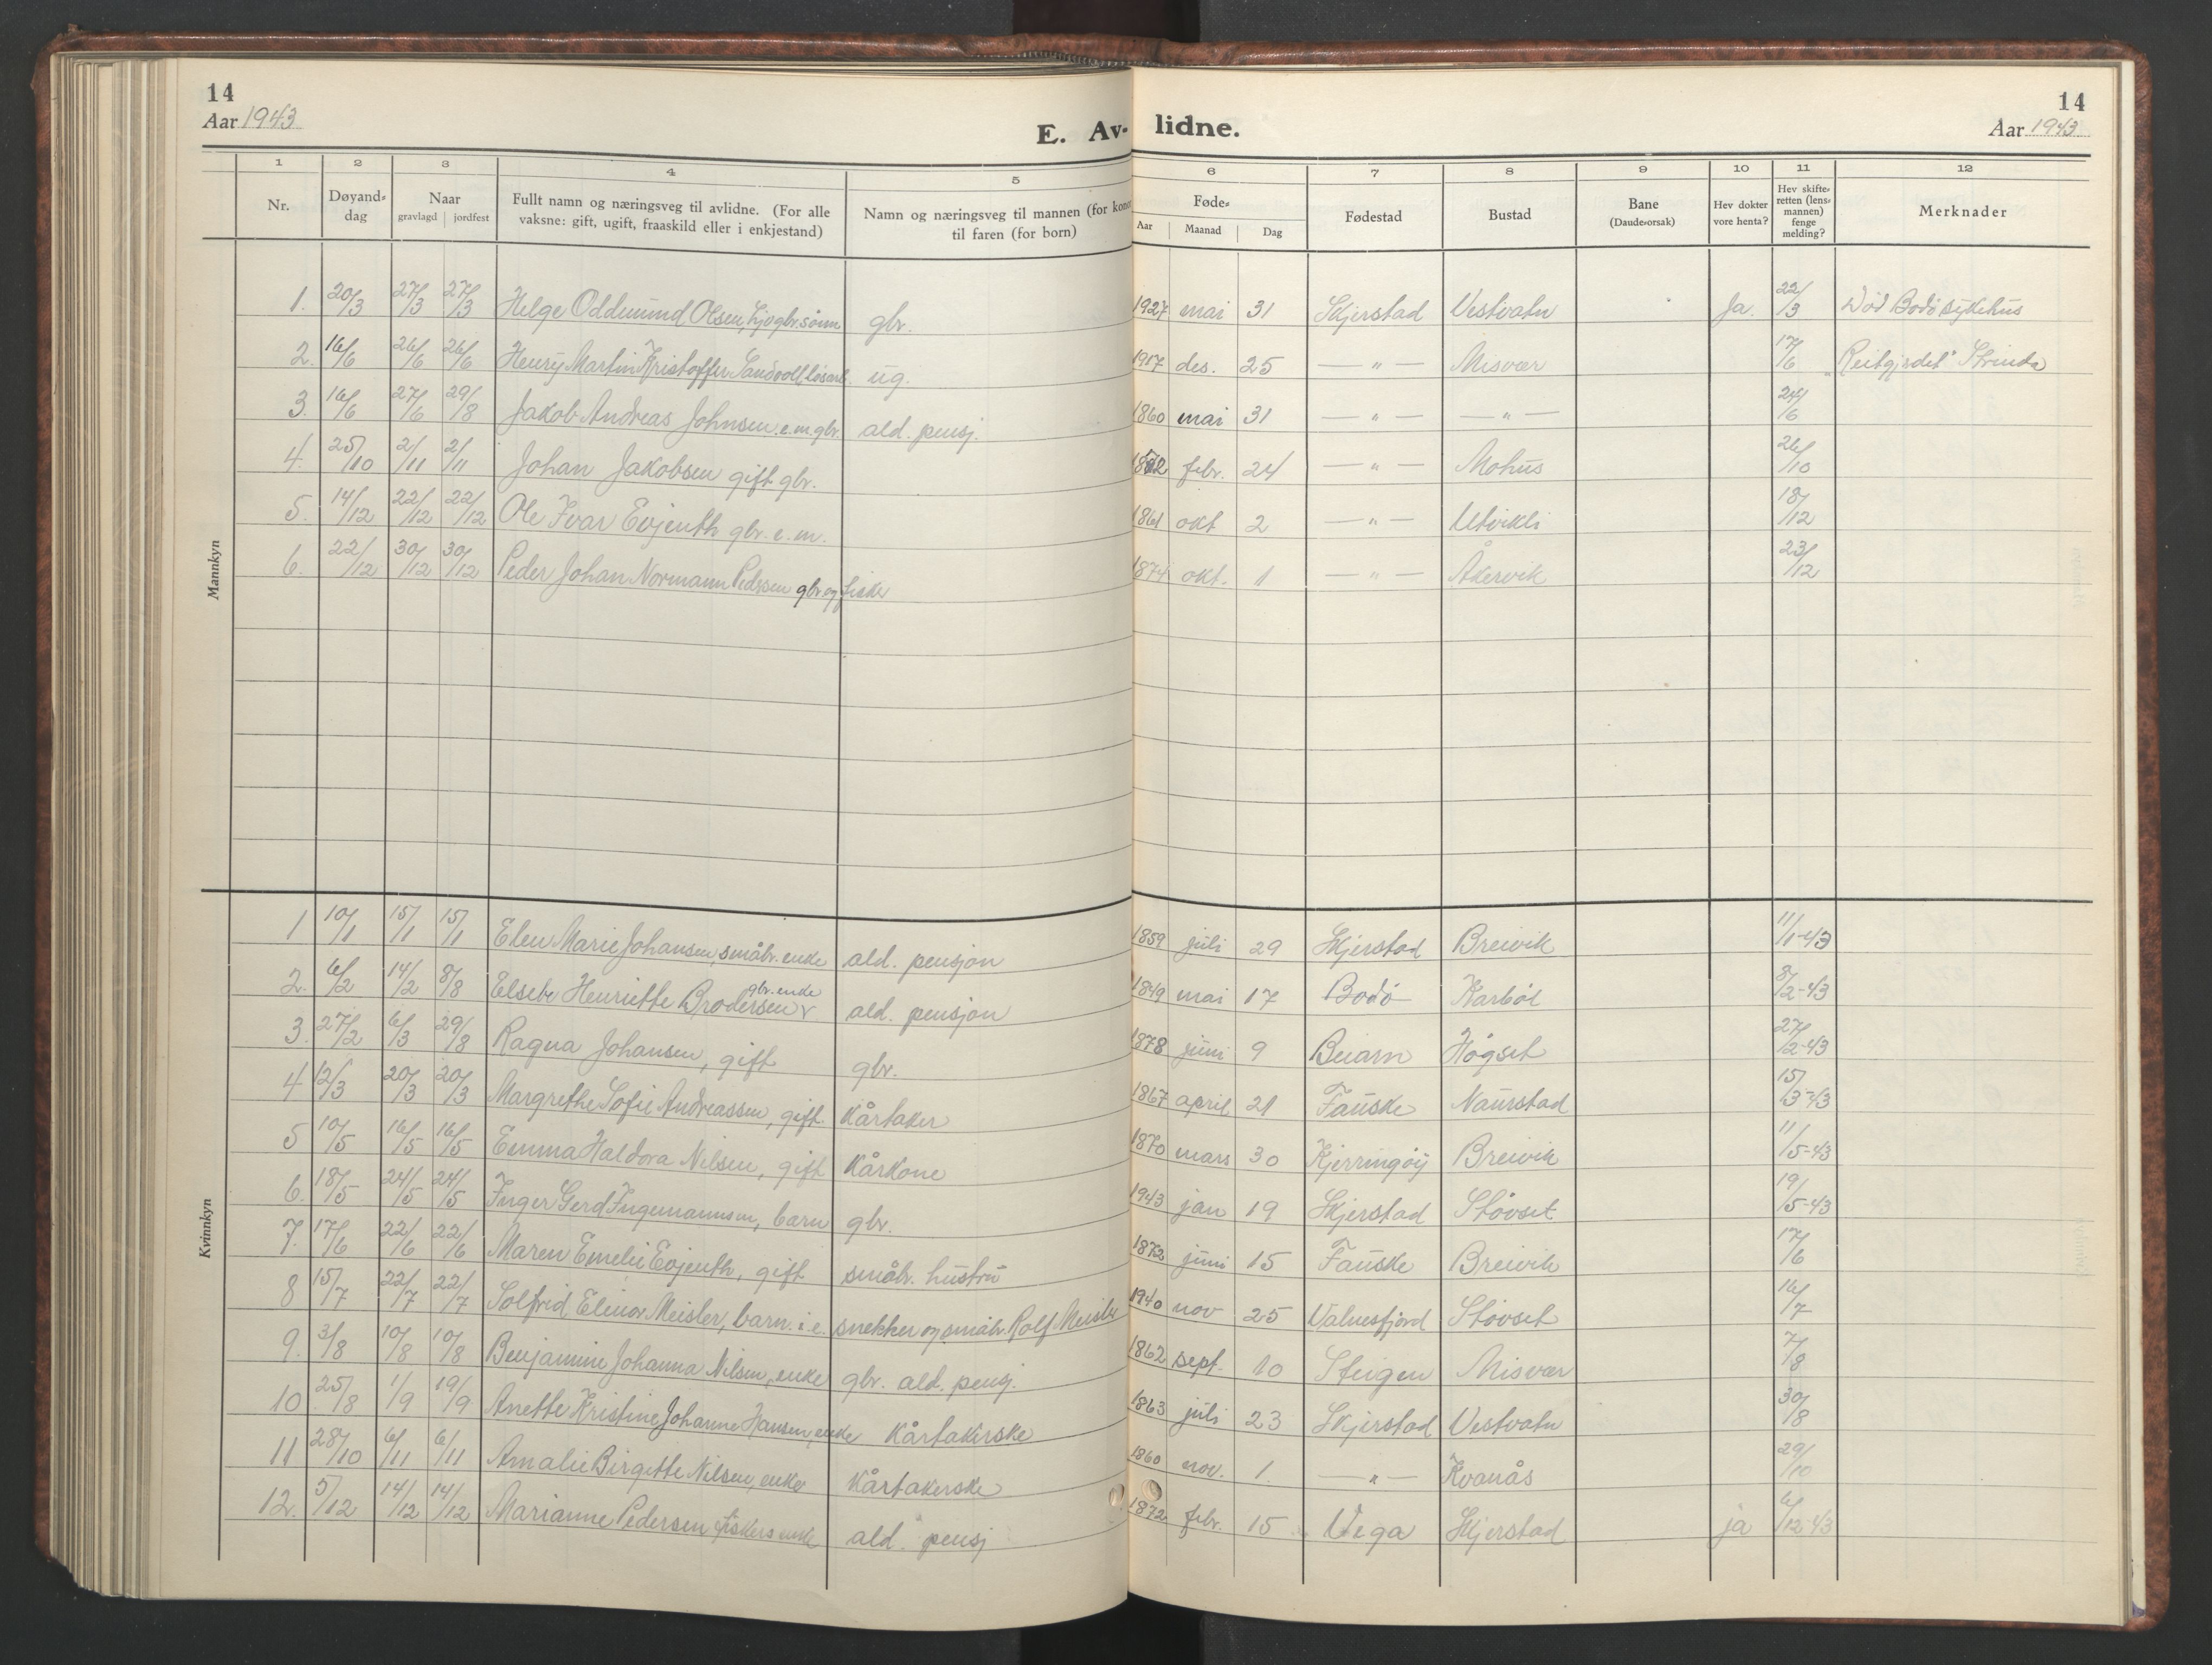 14
Aar 1943
E. Av-
lidne.
14
Aar 1943
1 2 3 4 5 6 7 8 9 10 11 12
Nr.
Døyand-
dag
Naar
gravlagd jordfest
Fullt namn og næringsveg til avlidne. (For alle
vaksne: gift, ugift, fraaskild eller i enkjestand)
Namn og næringsveg til mannen (for konor
til faren (for born)
Føde-
Aar Maanad Dag
Fødestad
Bustad
Bane
(Daude-orsak)
Hev dokter
vore henta?
Hev skifte-
retten (lens-
mannen)
fenge
melding?
Merknader
Mannkyn
1. 20/3 27/3 27/3 Helge Oddmund Olsen, gbr. sønn gbr. 1927 mai 31 Skjerstad Vestvatn Ja. 22/3 Død Bodø sykehus
2. 16/6 26/6 26/6 Henry Martin Kristoffer Sandvoll, løsarb. ug. 1917 des. 25 — " — Misvær 17/6 "Reitgjerdet" Strinda
3. 16/6 27/6 29/8 Jakob Andreas Johnsen e.m. gbr. ald. pensj. 1860 mai 31 — " — — " — 24/6
4. 25/10 2/11 2/11 Johan Jakobsen gift gbr. febr. 24 — " — Mohus 26/10
5. 14/12 22/12 22/12 Ole Ivar Evjenth gbr. e.m. 1861 okt 2 — " — Utvikli 18/12
6. 22/12 30/12 30/12 Peder Johan Normann Pedersen gbr og fisker 1874 okt. 1 — " — Åkervik 23/12
Kvinnkyn
1 10/1 15/1 15/1 Elen Marie Johansen, småbr. enke ald. pensjon 1859 juli 29 Skjerstad Breivik 11/1-43
2. 6/2 14/2 8/8 Elsebe Henriette Brodersen gbr. enke ald. pensjon 1849 mai 17 Bodø Karbøl 8/2-43
3. 27/2 6/3 29/8 Ragna Johansen, gift gbr. 1878 juni 9 Beiarn Høgset 27/2-43
4 12/3 20/3 20/3 Margrethe Sofie Andreassen, gift. Kårtaker 1867 april 21 Fauske Naurstad 15/3-43
5 10/5 16/5 16/5 Emma Haldora Nilsen, gift Kårkone 1870 mars 30 Kjerringøy Breivik 11/5-43
6. 18/5 24/5 24/5 Inger Gerd Ingemannsen, barn gbr. 1943 jan 19 Skjerstad Støvset 19/5-43
7. 17/6 22/6 22/6 Maren Emelie Evjenth, gift småbr. hustru 1872 juni 15 Fauske Breivik 17/6
8 15/7 22/7 22/7 Solfrid Elinor Meisler, barn i.e. snekker og småbr. Rolf Meisler 1940 nov 25 Valnesfjord Støvset 16/7
9. 3/8 10/8 10/8 Benjamine Johanna Nilsen, enke gbr. ald. pensj. 1862 sept. 10 Steigen Misvær 7/8
10 25/8 1/9 19/9 Anette Kristine Johanne Hansen, enke Kårtakerske 1863 juli 23 Skjerstad Vestvatn 30/8
11 28/10 6/11 6/11 Amalie Birgitte Nilsen, enke Kårtakerske 1860 nov. 1. — " — Kvanås 29/10
12. 5/12 14/12 14/12 Marianne Pedersen fiskers enke ald. pensj 1872 febr. 15 Vega Skjerstad ja 6/12-43